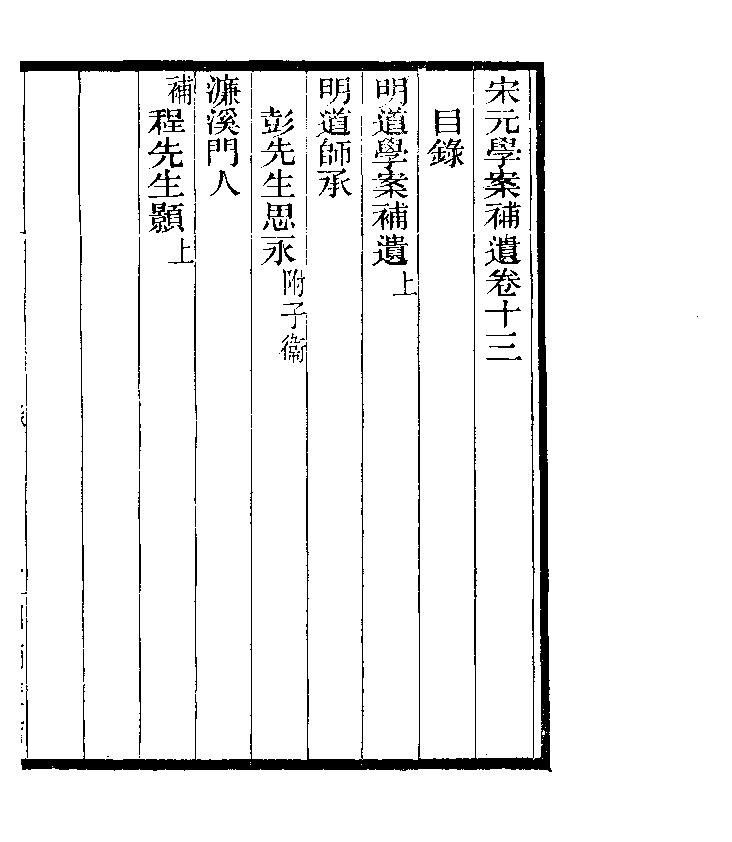 宋元學案補遺卷十三
目錄
明道學案補遺上
明道師承
彭先生思永附子衛
濂溪門人
補程先生顥上